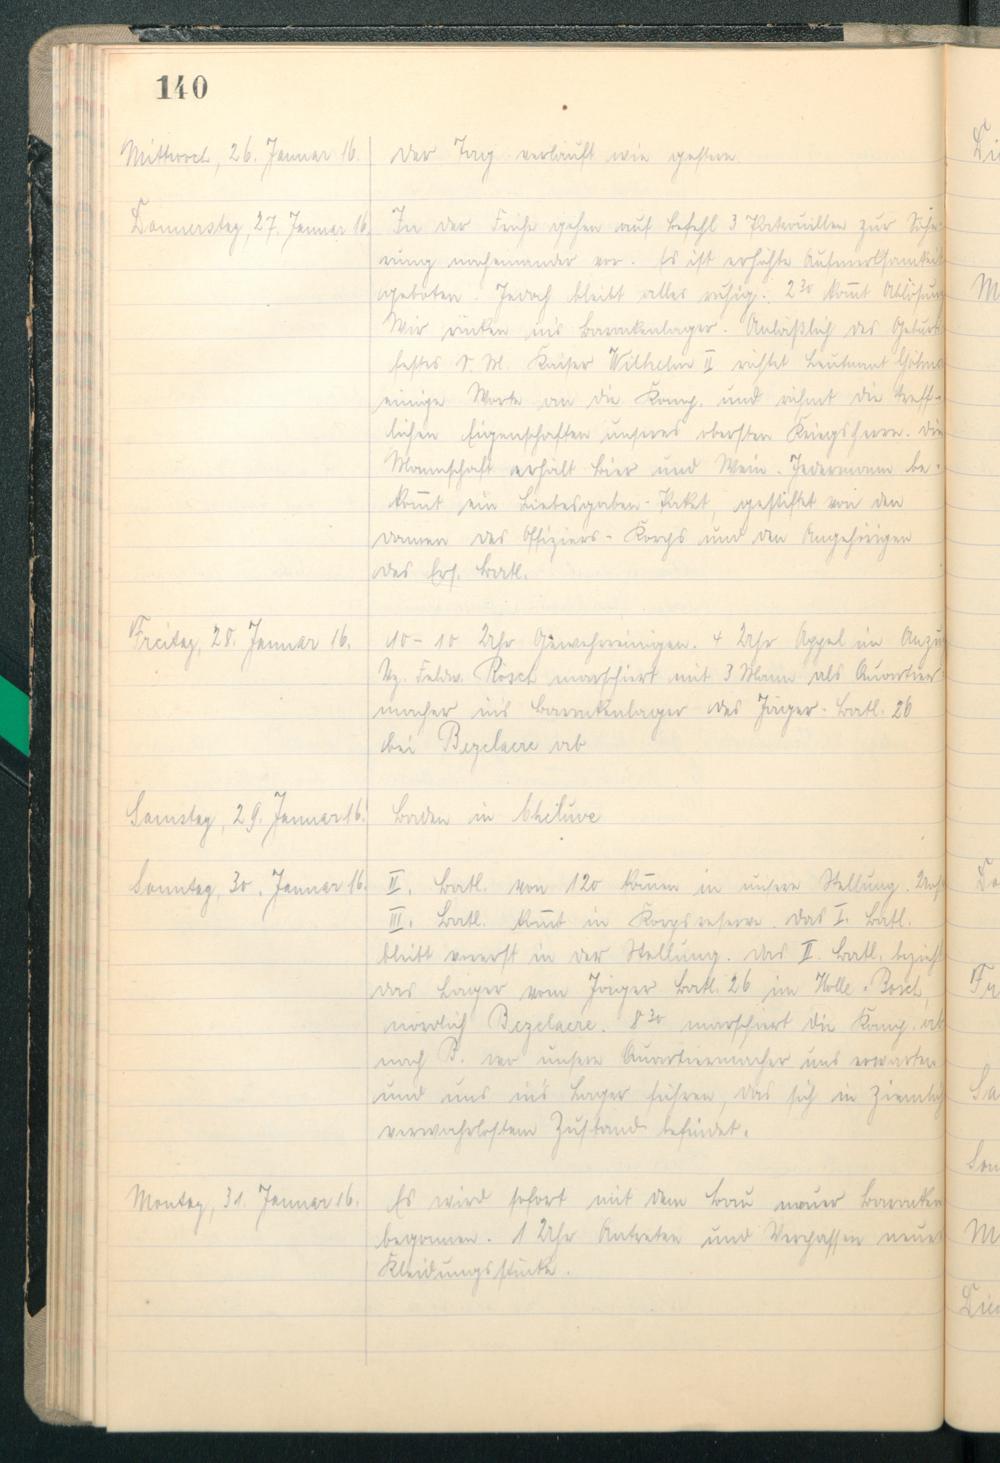 140
Mittwoch, 26. Januar 16. Der Tag verläuft wie gestern.
Donnerstag, 27. Januar 16. In der Frühe gehen auf Befehl 3 Patrouillen zur Siche-
rung nacheinander vor. Es ist erhöhte Aufmerksamkeit
geboten. Jedoch bleibt alles ruhig. 2 30 kom̄t Ablösung
Wir rücken ins Barackenlager. Anläßlich des Geburts
festes S. M. Kaiser Wilhelm II richtet Leutnant
einige Worte an die Komp. und rühmt die treff-
lichen Eigenschaften unseres obersten Kriegsherrn. Die
Mannschaft erhält Bier und Wein. Jedermann be-
kom̄t ein Liebesgaben-Paket, gestiftet von den
Damen des Offiziers-Korps und den Angehörigen
des Ers. Batl.
Freitag, 28. Januar 16. 10-10 Uhr Gewehrreinigen. 4 Uhr Appel im Anzug
Vz. Feldw. Rösch marschiert mit 3 Mann als Quartier
macher ins Barackenlager des Jäger-Batl. 26
bei Bezelaere ab
Samstag, 29. Januar 16. Baden in Gheluve
Sonntag, 30. Januar 16. II. Batl. von 120 kom̄en in unsere Stellung. Unser
III. Batl. kom̄t in Korpsreserve. Das I. Batl.
bleibt vorerst in der Stellung. Das II. Batl. bezieht
das Lager vom Jäger Batl. 26 im Holle-Bosch,
nördlich Bezelaere. 8 30 marschiert die Komp. ab
nach B. wo unsere Quartiermacher uns erwarten
und uns ins Lager führen, das sich in ziemlich
verwahrlostem Zustand befindet.
Montag, 31. Januar 16. Es wird sofort mit dem Bau neuer Baracken
begonnen. 1 Uhr Antreten und Verpassen neuer
Kleidungsstücke.